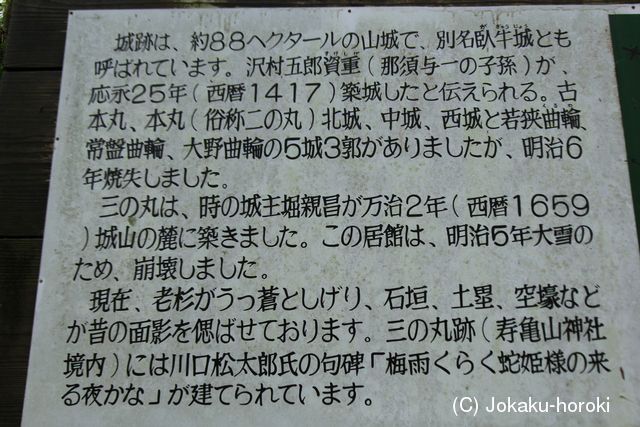 城跡は、約88ヘクタールの山城で、別名臥牛城とも
がぎゅうじょう
呼ばれています。沢村五郎資重(那須与一の子孫)が、
すけしげ
応永25年(西暦1417)築城したと伝えられる。古
本丸、本丸(俗称二の丸)北城、中城、西城と若狭曲輪、
常盤曲輪、大野曲輪の5城3郭がありましたが、明治6
年焼失しました。
三の丸は、時の城主堀親昌が万治2年(西暦1659
)城山の麓に築きました。この居館は、明治5年大雪の
ため、崩壊しました。
現在、老杉がうっ蒼としげり、石垣、土塁、空壕など
が昔の面影を偲ばせております。三の丸跡(寿亀山神社
境内)には川口松太郎氏の句碑「梅雨くらく蛇姫様の来
る夜かな」が建てられています。
(C) Jokaku-horoki